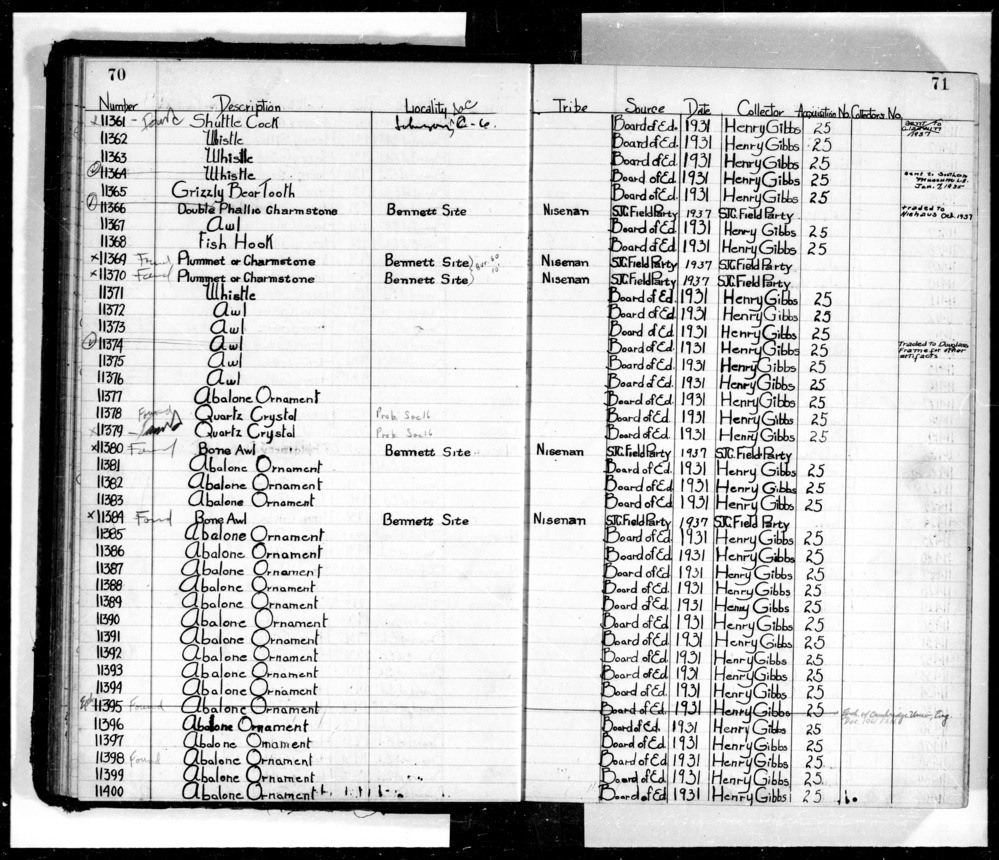 70
71
Number Description Locality Tribe Source Date Collector Acquisition No. Collectors No.
x 11361 - Found Shuttle Cock Johnson C-6. Board of Ed. 1931 Henry Gibbs 25 sent to 1937
11362 Whistle Board of Ed. 1931 Henry Gibbs 25
11363 Whistle Board of Ed. 1931 Henry Gibbs 25
11364 Whistle Board of Ed 1931 Henry Gibbs 25 sent to Southern Museum L.A. Jan. 7, 1935
11365 Grizzly Bear Tooth Board of Ed. 1931 Henry Gibbs 25
11366 Double Phallic Charmstone Bennett Site Nisenan SJC Field Party 1937 SJC Field Party traded to Niehaus Oct. 1937
11367 Awl Board of Ed. 1931 Henry Gibbs 25
11368 Fish Hook Board of Ed. 1931 Henry Gibbs 25
x 11369 Found Plummet or Charmstone Bennett Site Nisenan SJC Field Party 1937 SJC Field Party
x 11370 Found Plummet or Charmstone Bennett Site Nisenan SJC Field Party 1937 SJC Field Party
11371 Whistle Board of Ed. 1931 Henry Gibbs 25
11372 Awl Board of Ed. 1931 Henry Gibbs 25
11373 Awl Board of Ed. 1931 Henry Gibbs 25
11374 Awl Board of Ed. 1931 Henry Gibbs 25 Traded to Douglass Frame for other artifacts
11375 Awl Board of Ed. 1931 Henry Gibbs 25
11376 Awl Board of Ed. 1931 Henry Gibbs 25
11377 Abalone Ornament Board of Ed. 1931 Henry Gibbs 25
11378 Found Quartz Crystal Prob. Sac 16 Board of Ed. 1931 Henry Gibbs 25
x 11379 Quartz Crystal Prob. Sac 16 Board of Ed. 1931 Henry Gibbs 25
x 11380 Found Bone Awl Bennett Site Nisenan SJC Field Party 1937 SJC Field Party
11381 Abalone Ornament Board of Ed 1931 Henry Gibbs 25
11382 Abalone Ornament Board of Ed 1931 Henry Gibbs 25
11383 Abalone Ornament Board of Ed 1931 Henry Gibbs 25
x 11384 Found Bone Awl Bennett Site Nisenan SJC Field Party 1937 SJC Field Party
11385 Abalone Ornament Board of Ed 1931 Henry Gibbs 25
11386 Abalone Ornament Board of Ed. 1931 Henry Gibbs 25
11387 Abalone Ornament Board of Ed 1931 Henry Gibbs 25
11388 Abalone Ornament Board of Ed. 1931 Henry Gibbs 25
11389 Abalone Ornament Board of Ed. 1931 Henry Gibbs 25
11390 Abalone Ornament Board of Ed 1931 Henry Gibbs 25
11391 Abalone Ornament Board of Ed. 1931 Henry Gibbs 25
11392 Abalone Ornament Board of Ed. 1931 Henry Gibbs 25
11393 Abalone Ornament Board of Ed. 1931 Henry Gibbs 25
11394 Abalone Ornament Board of Ed. 1931 Henry Gibbs 25
11395 Found Abalone Ornament Board of Ed. 1931 Henry Gibbs 25 Exch. of Cambridge Univ., Eng.
11396 Abalone Ornament Board of Ed. 1931 Henry Gibbs 25
11397 Abalone Ornament Board of Ed. 1931 Henry Gibbs 25
11398 Found Abalone Ornament Board of Ed 1931 Henry Gibbs 25
11399 Abalone Ornament Board of Ed 1931 Henry Gibbs 25
11400 Abalone Ornament Board of Ed. 1931 Henry Gibbs 25